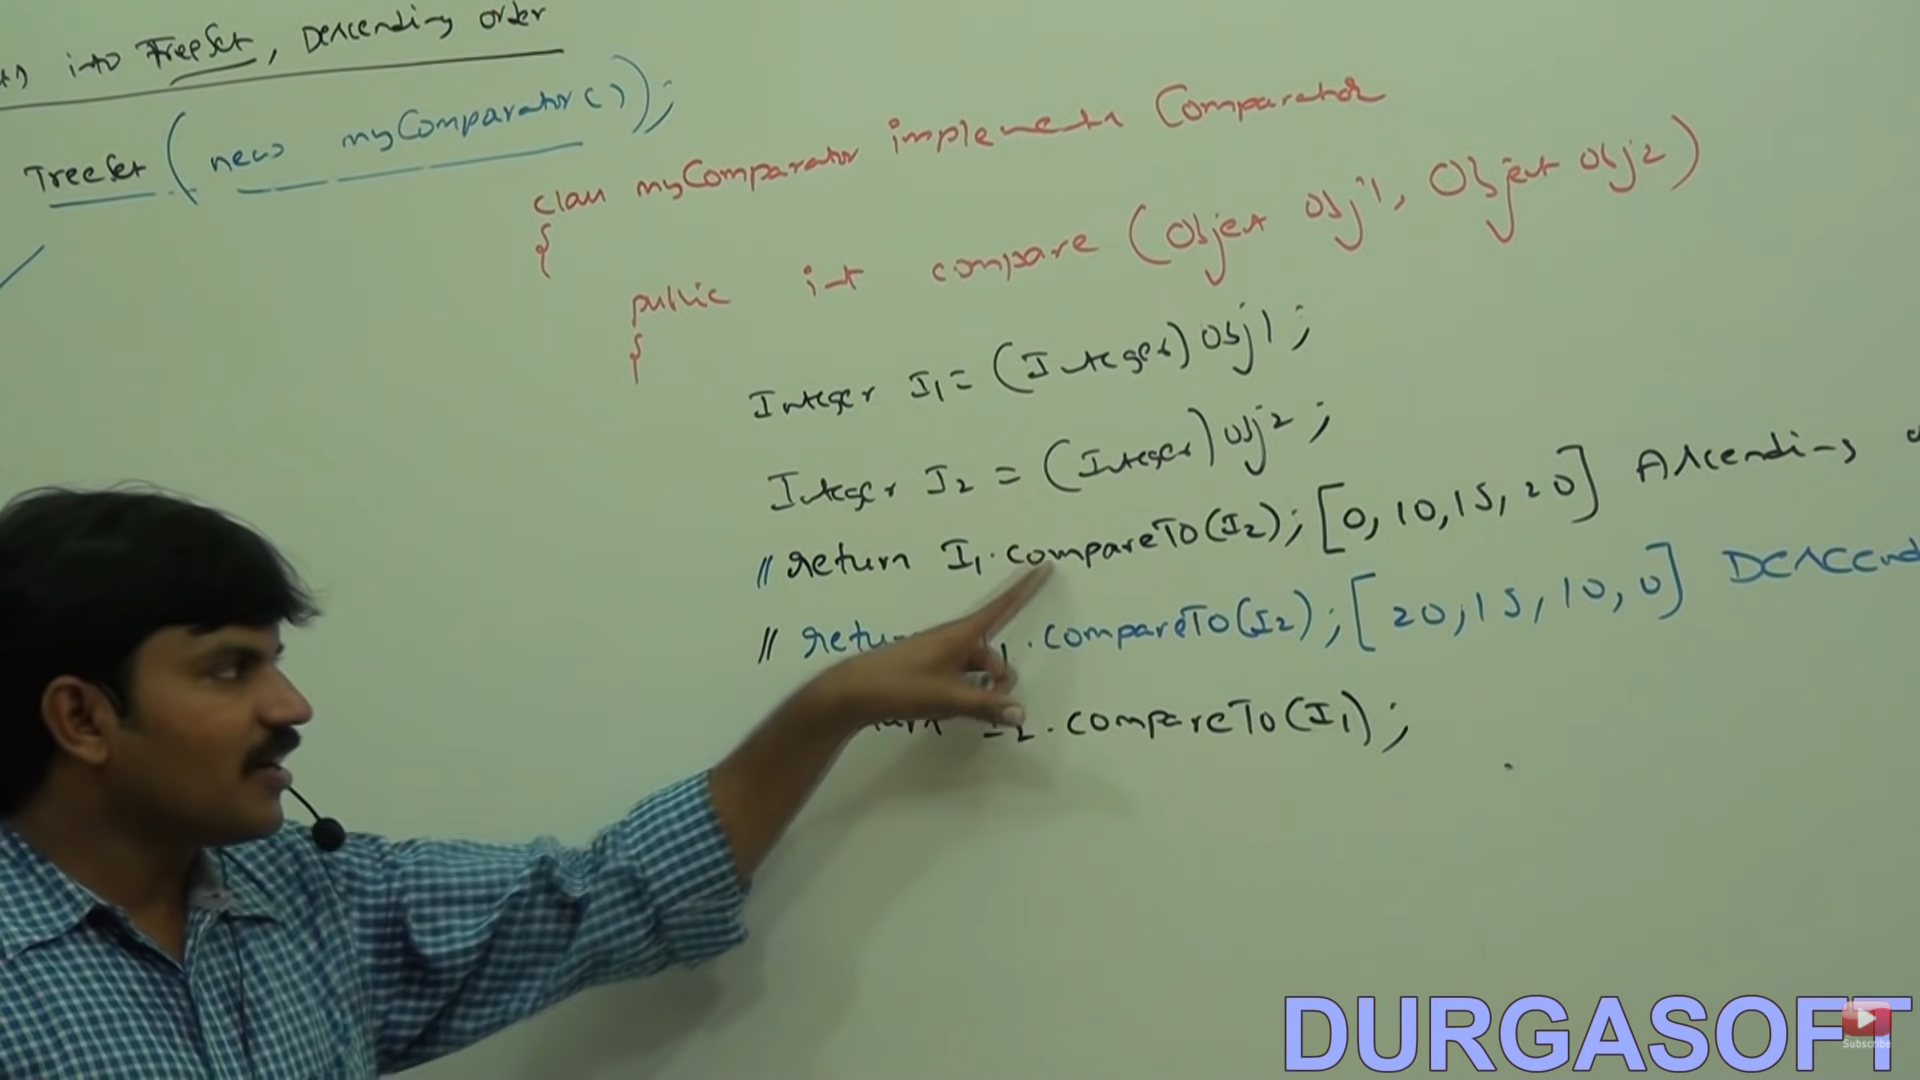 into TreeSet, Descending order
TreeSet (new myComparator());
class myComparator implements Comparator
{
public int compare (Object obj1, Object obj2)
{
Integer I1 = (Integer) obj1 ;
Integer I2 = (Integer) obj2 ;
// return I1.compareTo(I2); [0, 10, 15, 20] Ascending
// .compareTo(I2); [20, 15, 10, 0]
I2.compareTo(I1);
DURGASOFT
Subscribe